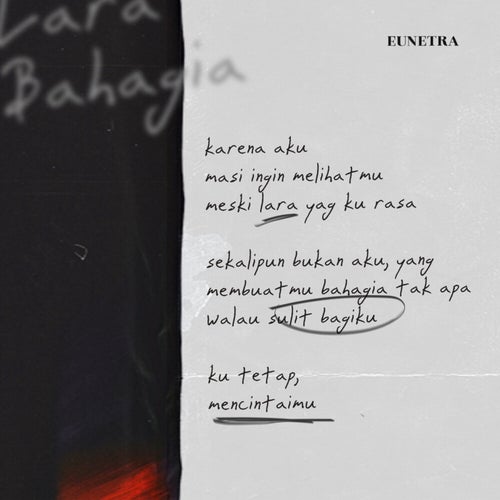 Lara
Bahagia
EUNETRA
karena aku
masi ingin melihatmu
meski lara yag ku rasa
sekalipun bukan aku, yang
membuatmu bahagia tak apa
walau sulit bagiku
ku tetap,
mencintaimu